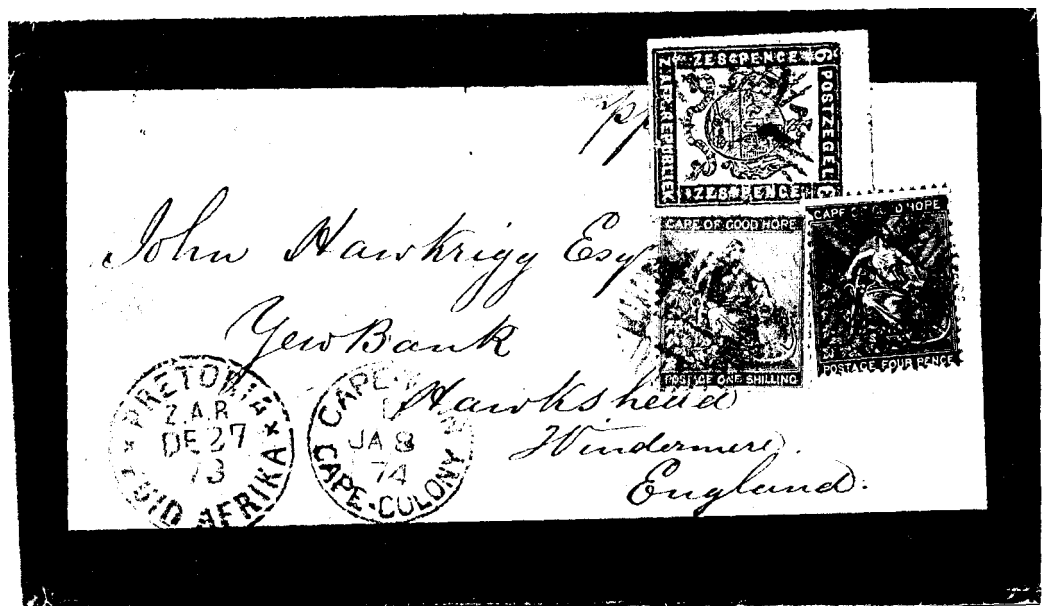 ZES PENCE
6 POSTZEGEL 6
Z. AFR. REPUBLIEK
ZES PENCE
CAPE OF GOOD HOPE
POSTAGE ONE SHILLING
CAPE OF GOOD HOPE
POSTAGE FOUR PENCE
John Hawkrigg Esq
Yew Bank
Hawkshead
Windermere.
England.
PRETORIA
Z.A.R
DE 27
73
ZUID AFRIKA
CAPE
JA 8
74
CAPE·COLONY